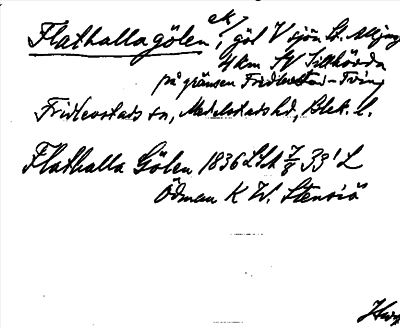 Flathallagölen, göl V sjön St. Alljung
4 km SV Tillkörda
på gränsen Fridlevstad-Tving
Fridlevstads sn, Medelstads hd, Blek. l.
Flathalla Gölen 1836 LSA 7/8 33' L
Ödman K W. Stensiö